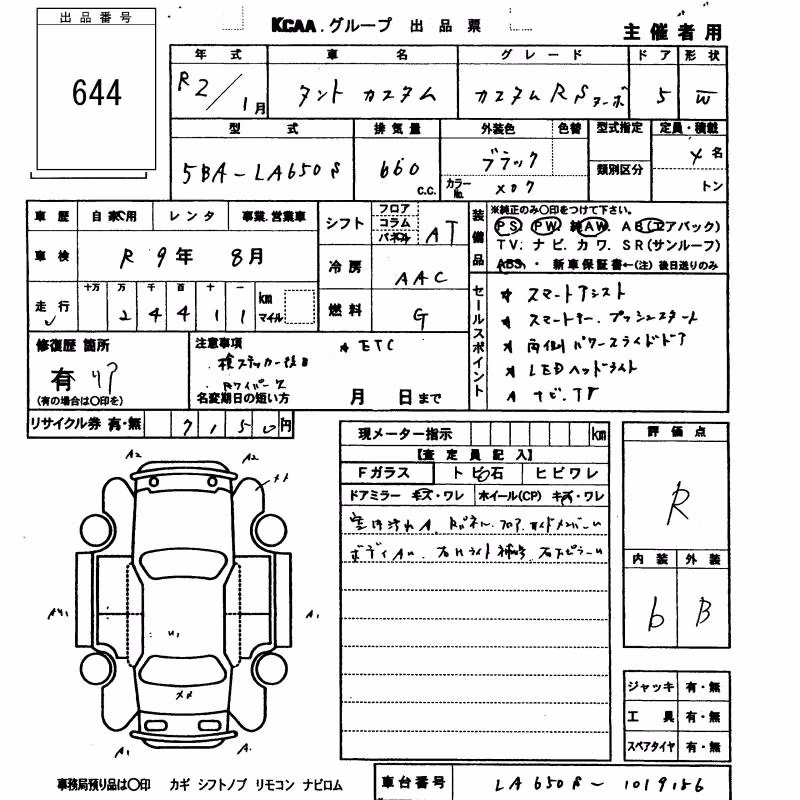 出品番号
644
KCAA.グループ 出品票
主催者用
年式 車名 グレード ドア 形状
R2/1月 タント カスタム カスタムRSターボ 5 W
型式 排気量 外装色 色替 型式指定 定員・積載
5BA-LA650S 660 c.c. ブラック 類別区分 4名
カラーNo. X07 トン
車歴 自家用 レンタ 事業.営業車
シフト フロア コラム パネル AT
装備品 ※純正のみ〇印をつけて下さい。
PS. PW. 純AW. AB(エアバック)
TV. ナビ. カワ. SR(サンルーフ)
ABS・ 新車保証書←(注)後日送りのみ
車検 R 9年 8月
冷房 AAC
走行 十万 万 千 百 十 一 km マイル
2 4 4 1 1
燃料 G
セールスポイント
★ スマートアシスト
★ スマートキー. プッシュスタート
★ 両側パワースライドドア
★ LEDヘッドライト
★ ナビ.TV
修復歴 箇所
有 リア
(有の場合は〇印を)
注意事項 ★ETC
・検ステッカー後日
・Rワイパーヌケ
名変期日の短い方 月 日まで
リサイクル券 有・無 7150円
現メーター指示 km
【査定員記入】
Fガラス トビ石 ヒビワレ
ドアミラー キズ・ワレ ホイール(CP) キズ・ワレ
室内汚れA. Rパネル. フロア. サイドメンバーU
ボディAU. 右Hライト補修. 右下ピラーU
評価点
R
内装 外装
6 B
A2 A2
A1 A1
U1
XX
A1 A.
ジャッキ 有・無
工具 有・無
スペアタイヤ 有・無
事務局預り品は〇印 カギ シフトノブ リモコン ナビロム
車台番号 LA650S-1019156